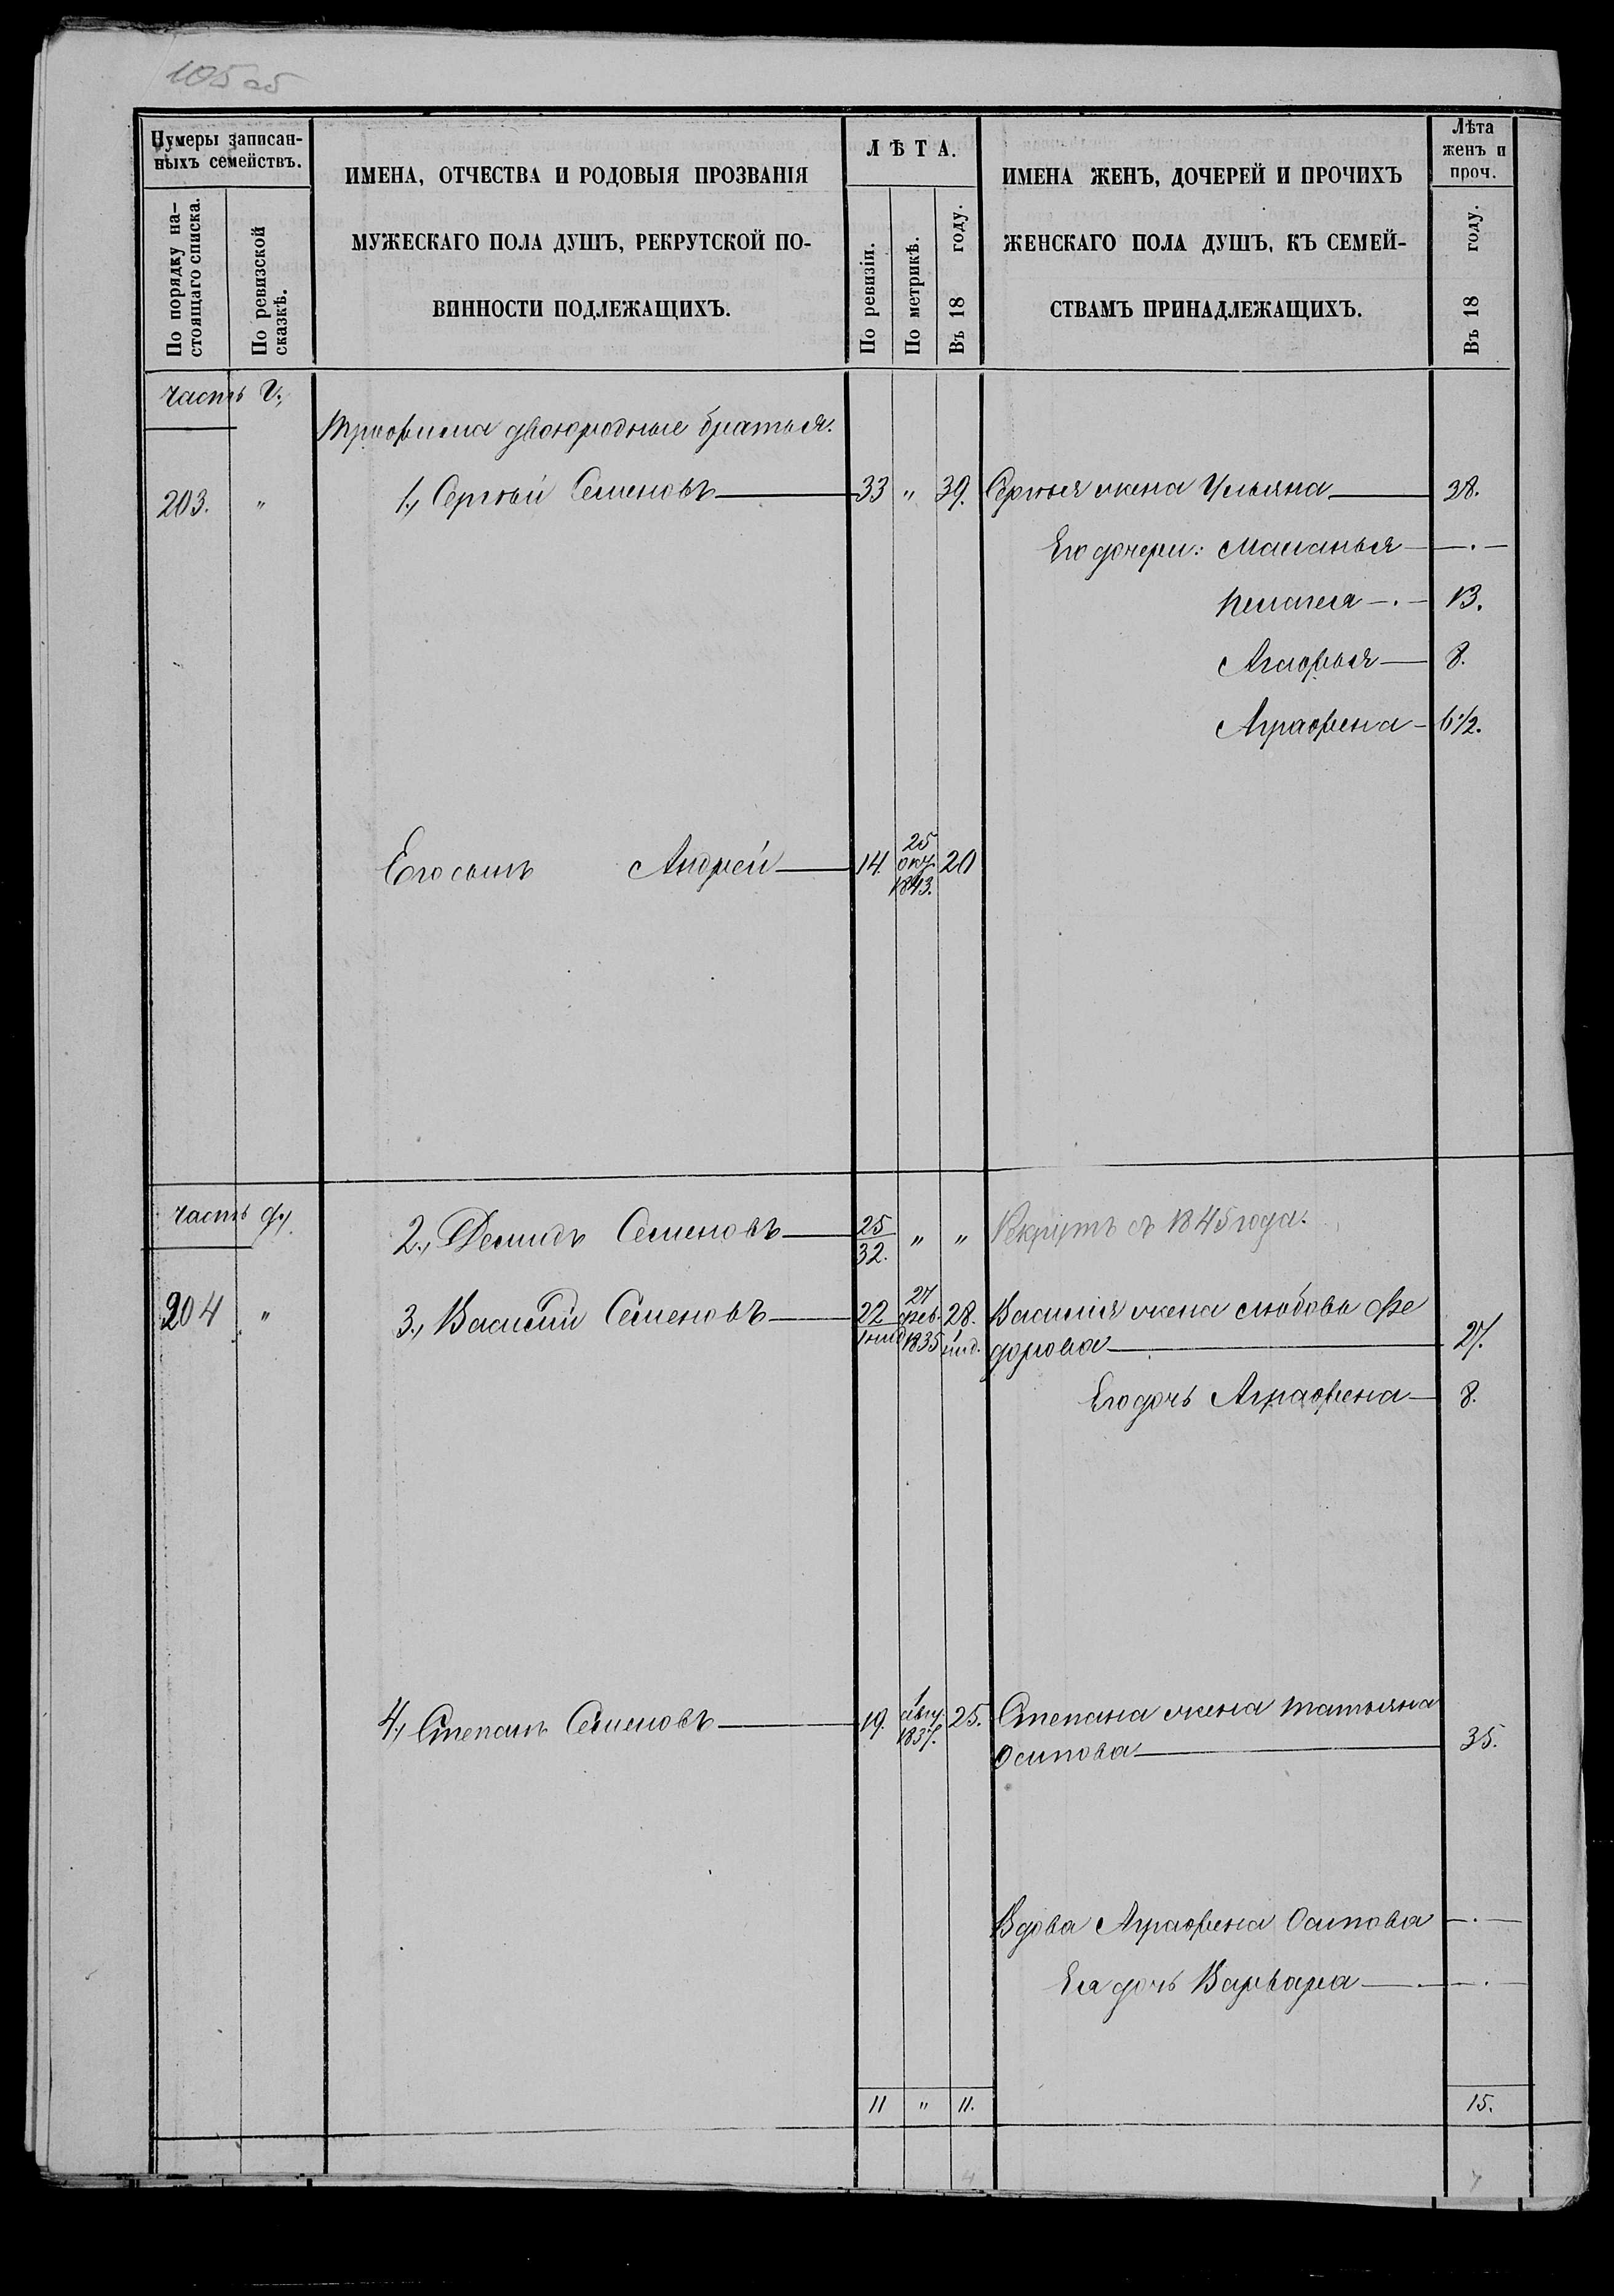 105 об
Нумеры записан-
ныхъ семействъ.
По порядку на-
стоящаго списка.
По ревизской
сказкѣ.
ИМЕНА, ОТЧЕСТВА И РОДОВЫЯ ПРОЗВАНІЯ
МУЖЕСКАГО ПОЛА ДУШЪ, РЕКРУТСКОЙ ПО-
ВИННОСТИ ПОДЛЕЖАЩИХЪ.
ЛѢТА.
По ревизіи.
По метрикѣ.
Въ 18 году.
ИМЕНА ЖЕНЪ, ДОЧЕРЕЙ И ПРОЧИХЪ
ЖЕНСКАГО ПОЛА ДУШЪ, КЪ СЕМЕЙ-
СТВАМЪ ПРИНАДЛЕЖАЩИХЪ.
Лѣта
женъ и
проч.
Въ 18 году.
часть
Трифона двоюродные братья.
203. " 1., Сергѣй Семеновъ 33 " 39. Сергѣя жена Ульяна 38.
Его дочери: Маланья — . —
Пелагея — . — 13.
Агафья — 8.
Аграфена — 6½.
Его сынъ Андрей 14. 25 окт. 1843. 20
часть
2., Демидъ Семеновъ 25/32. " " Рекрутъ съ 1845 года.
204 " 3., Василій Семеновъ 22 27 фев. 1835 28. Василія жена Любовь Фе
дорова 27.
Его дочь Аграфена — 8.
4., Степанъ Семеновъ 19. 1 авгу. 1837. 25. Степана жена Татьяна
Осипова 35.
Вдова Аграфена Осипова — . —
Ея дочь Варвара — . —
11 " 11. 15.
4